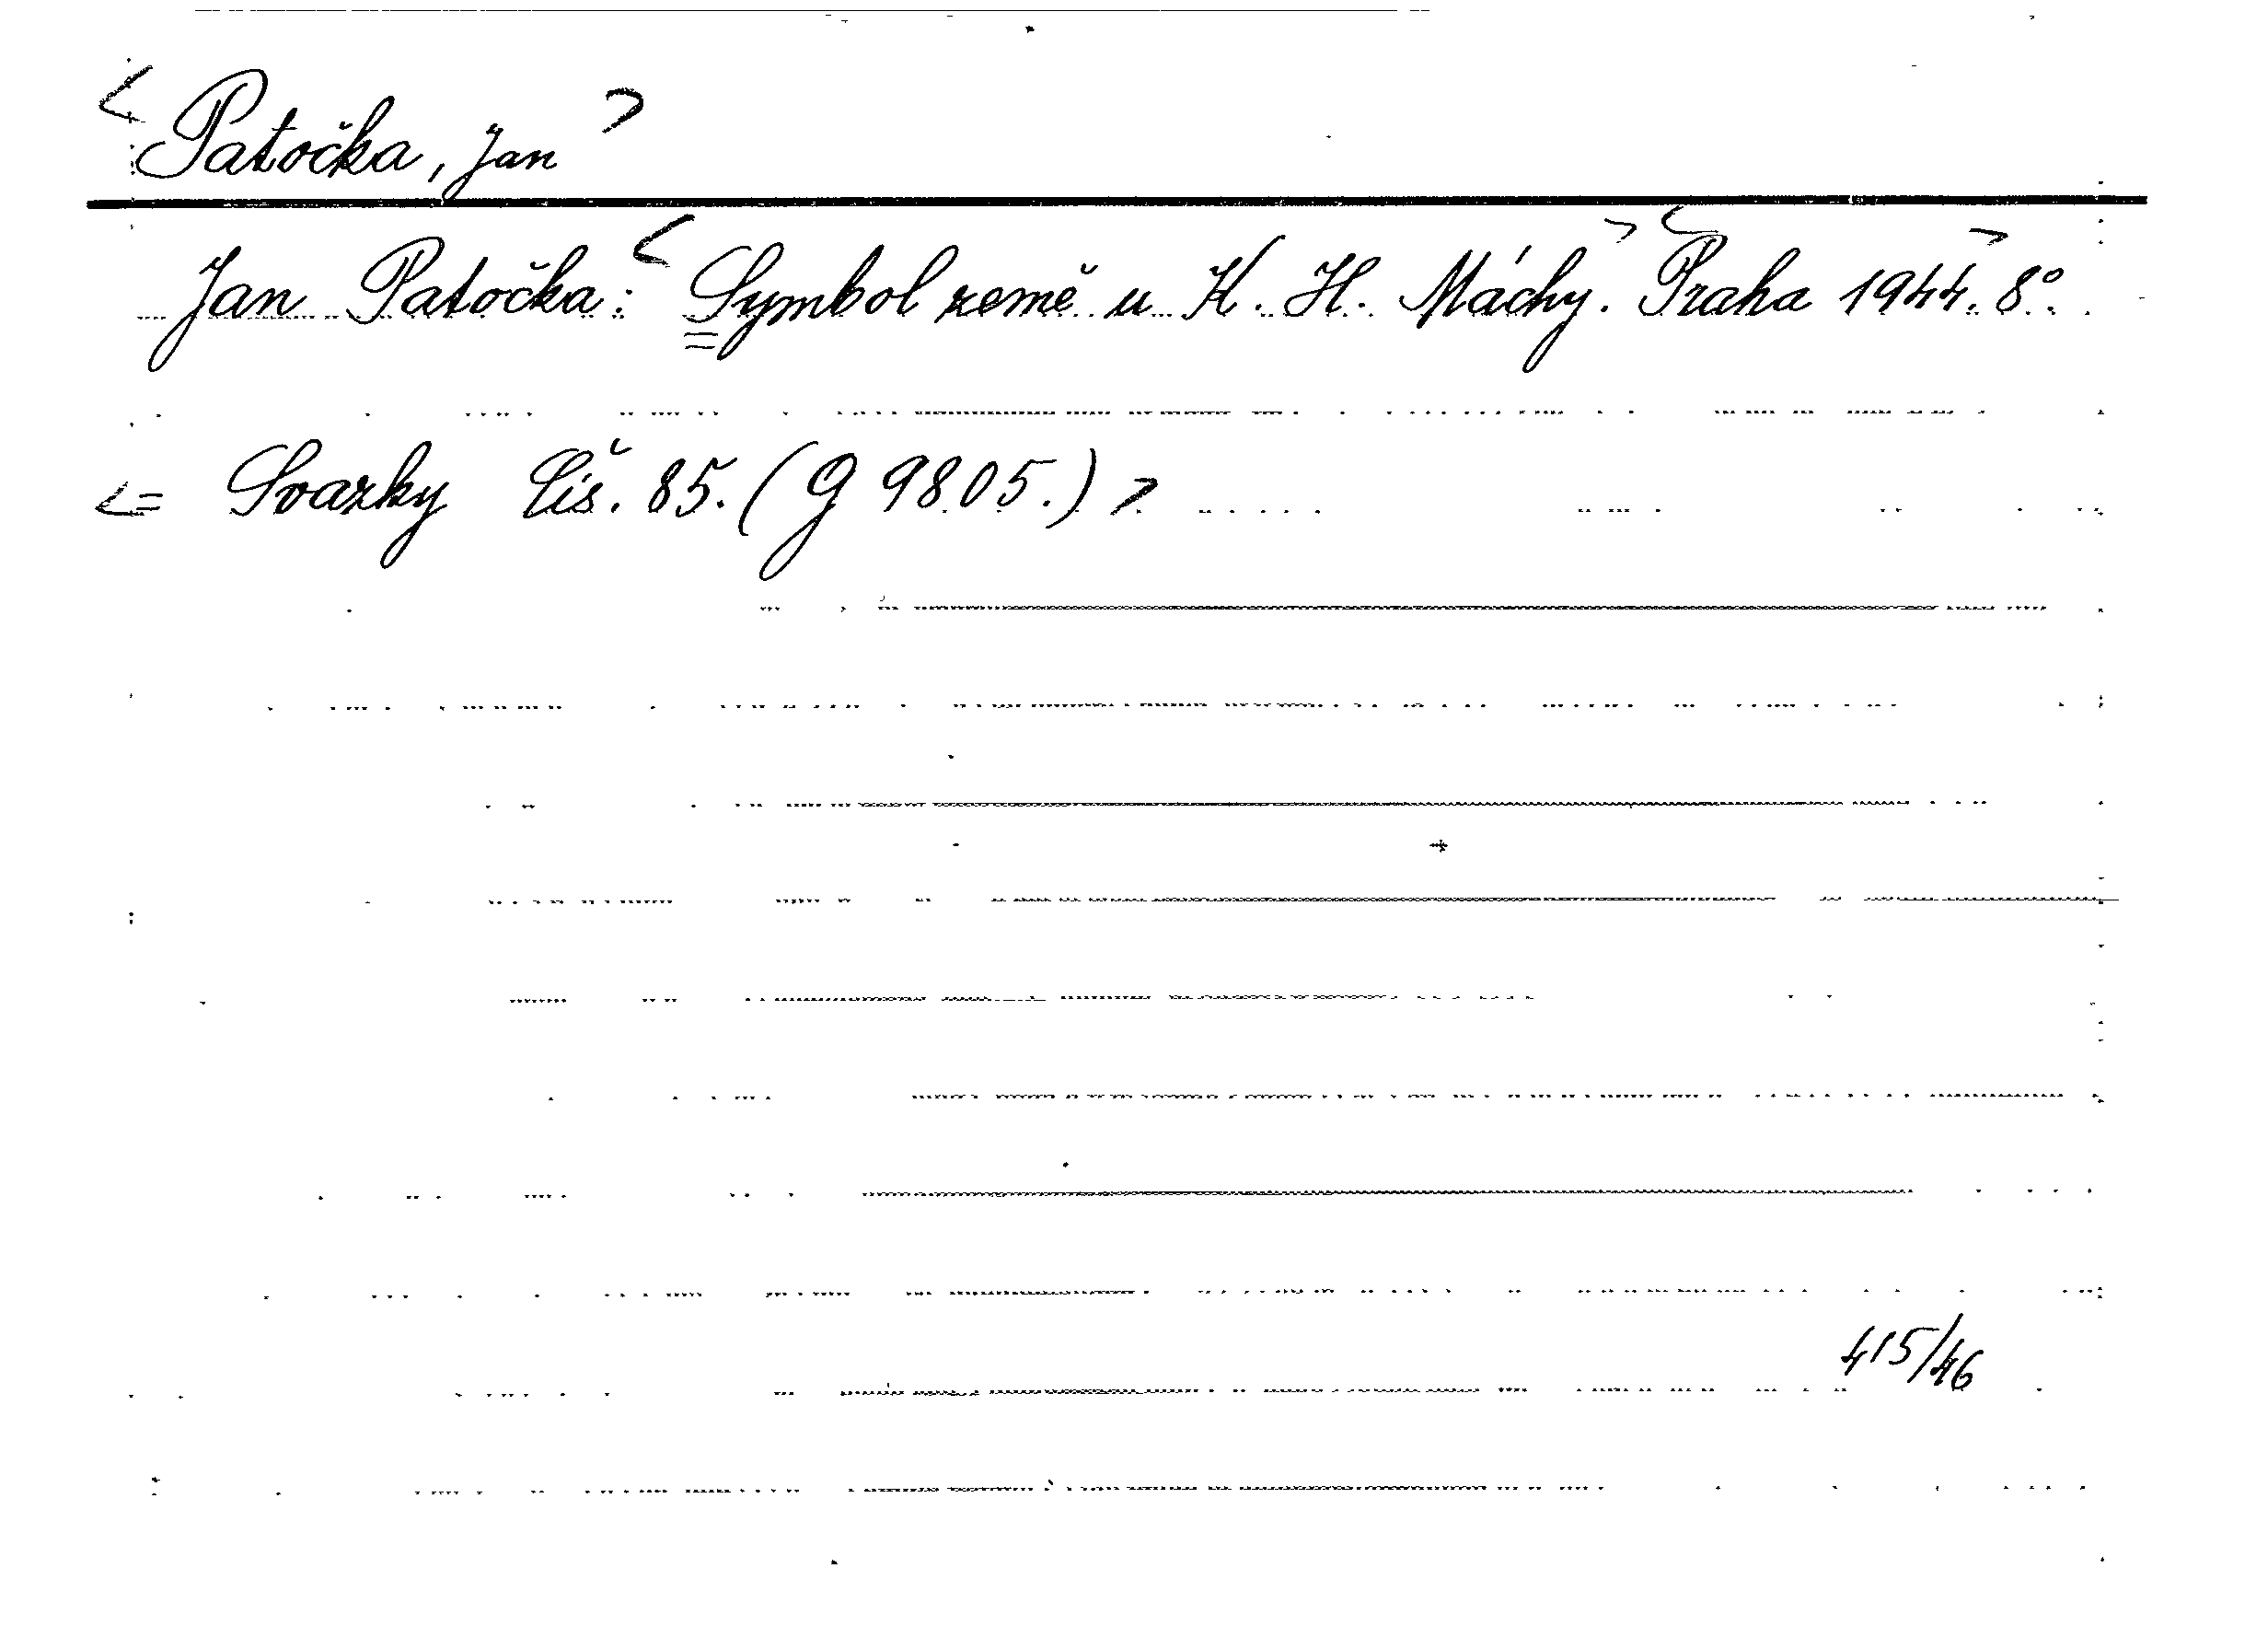 <Patočka, Jan>
Jan Patočka: <Symbol země u K. H. Máchy.> <Praha 1944.> 8°.
<= Svazky čís. 85. (G 9805.)>
415/46